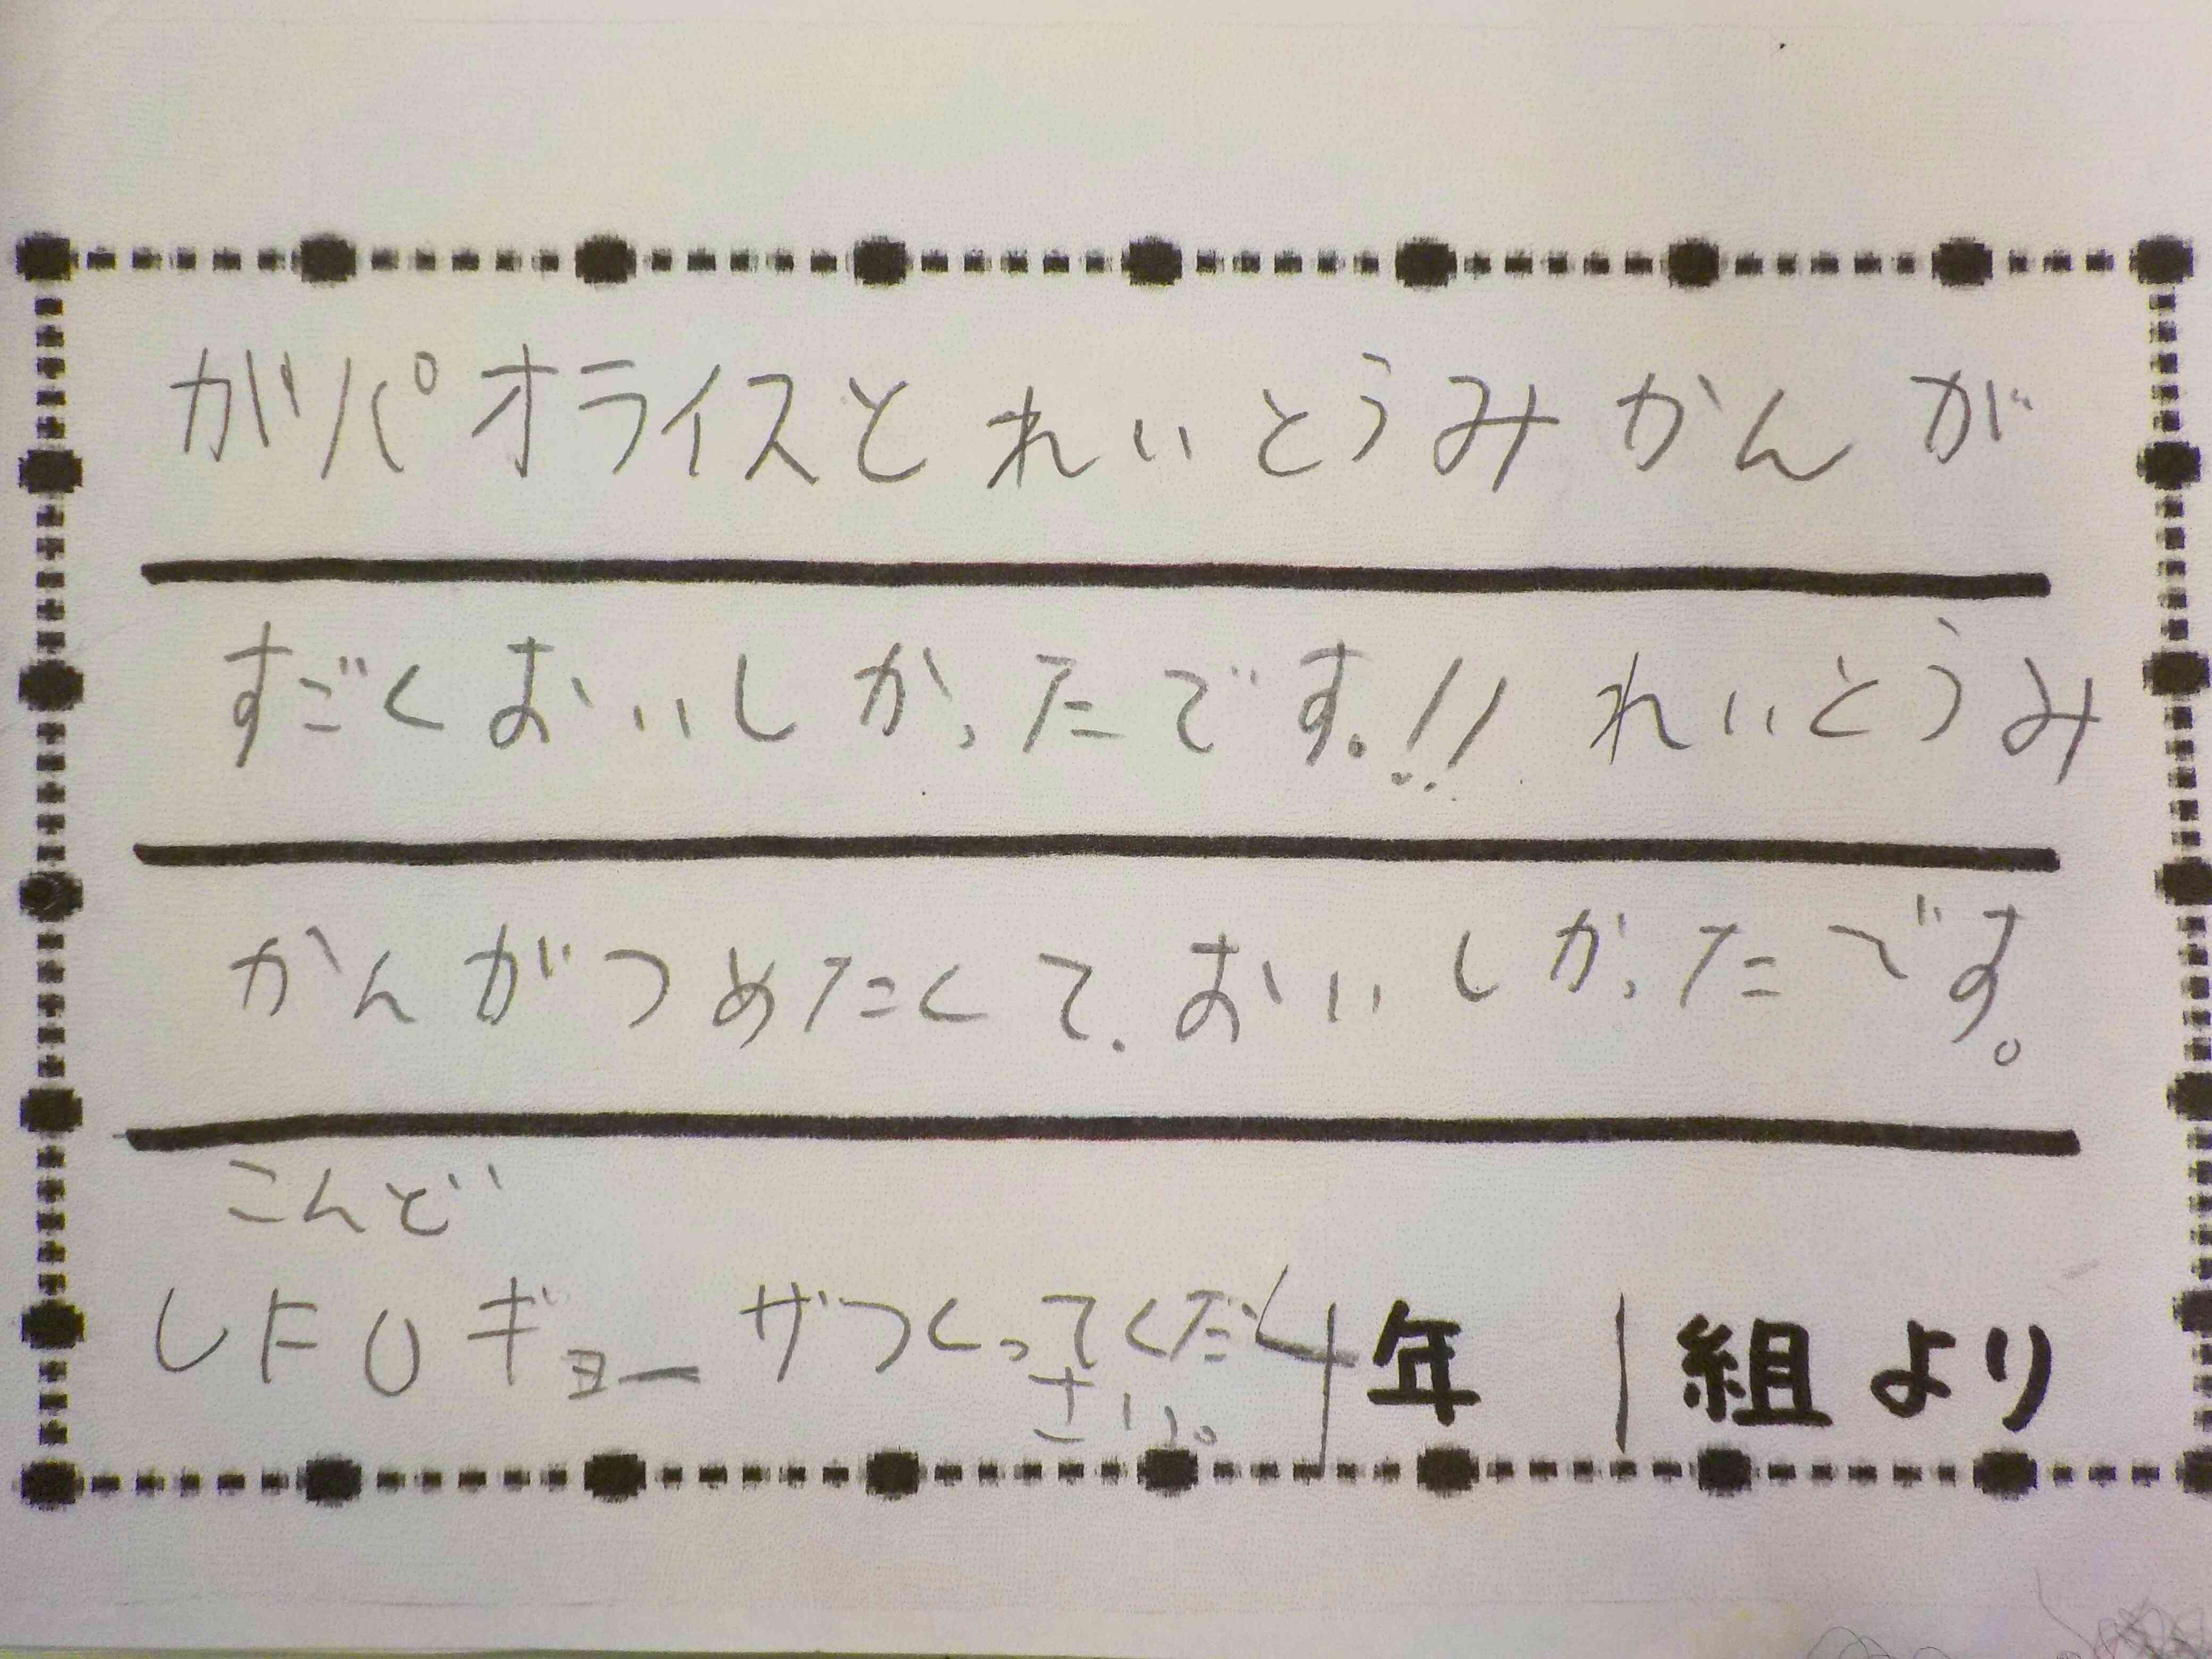 ガパオライスとれいとうみかんが
すごくおいしかったです。!! れいとうみ
かんがつめたくて、おいしかったです。
こんど
ギョーザつくってくだ
さい。
4年 1組より